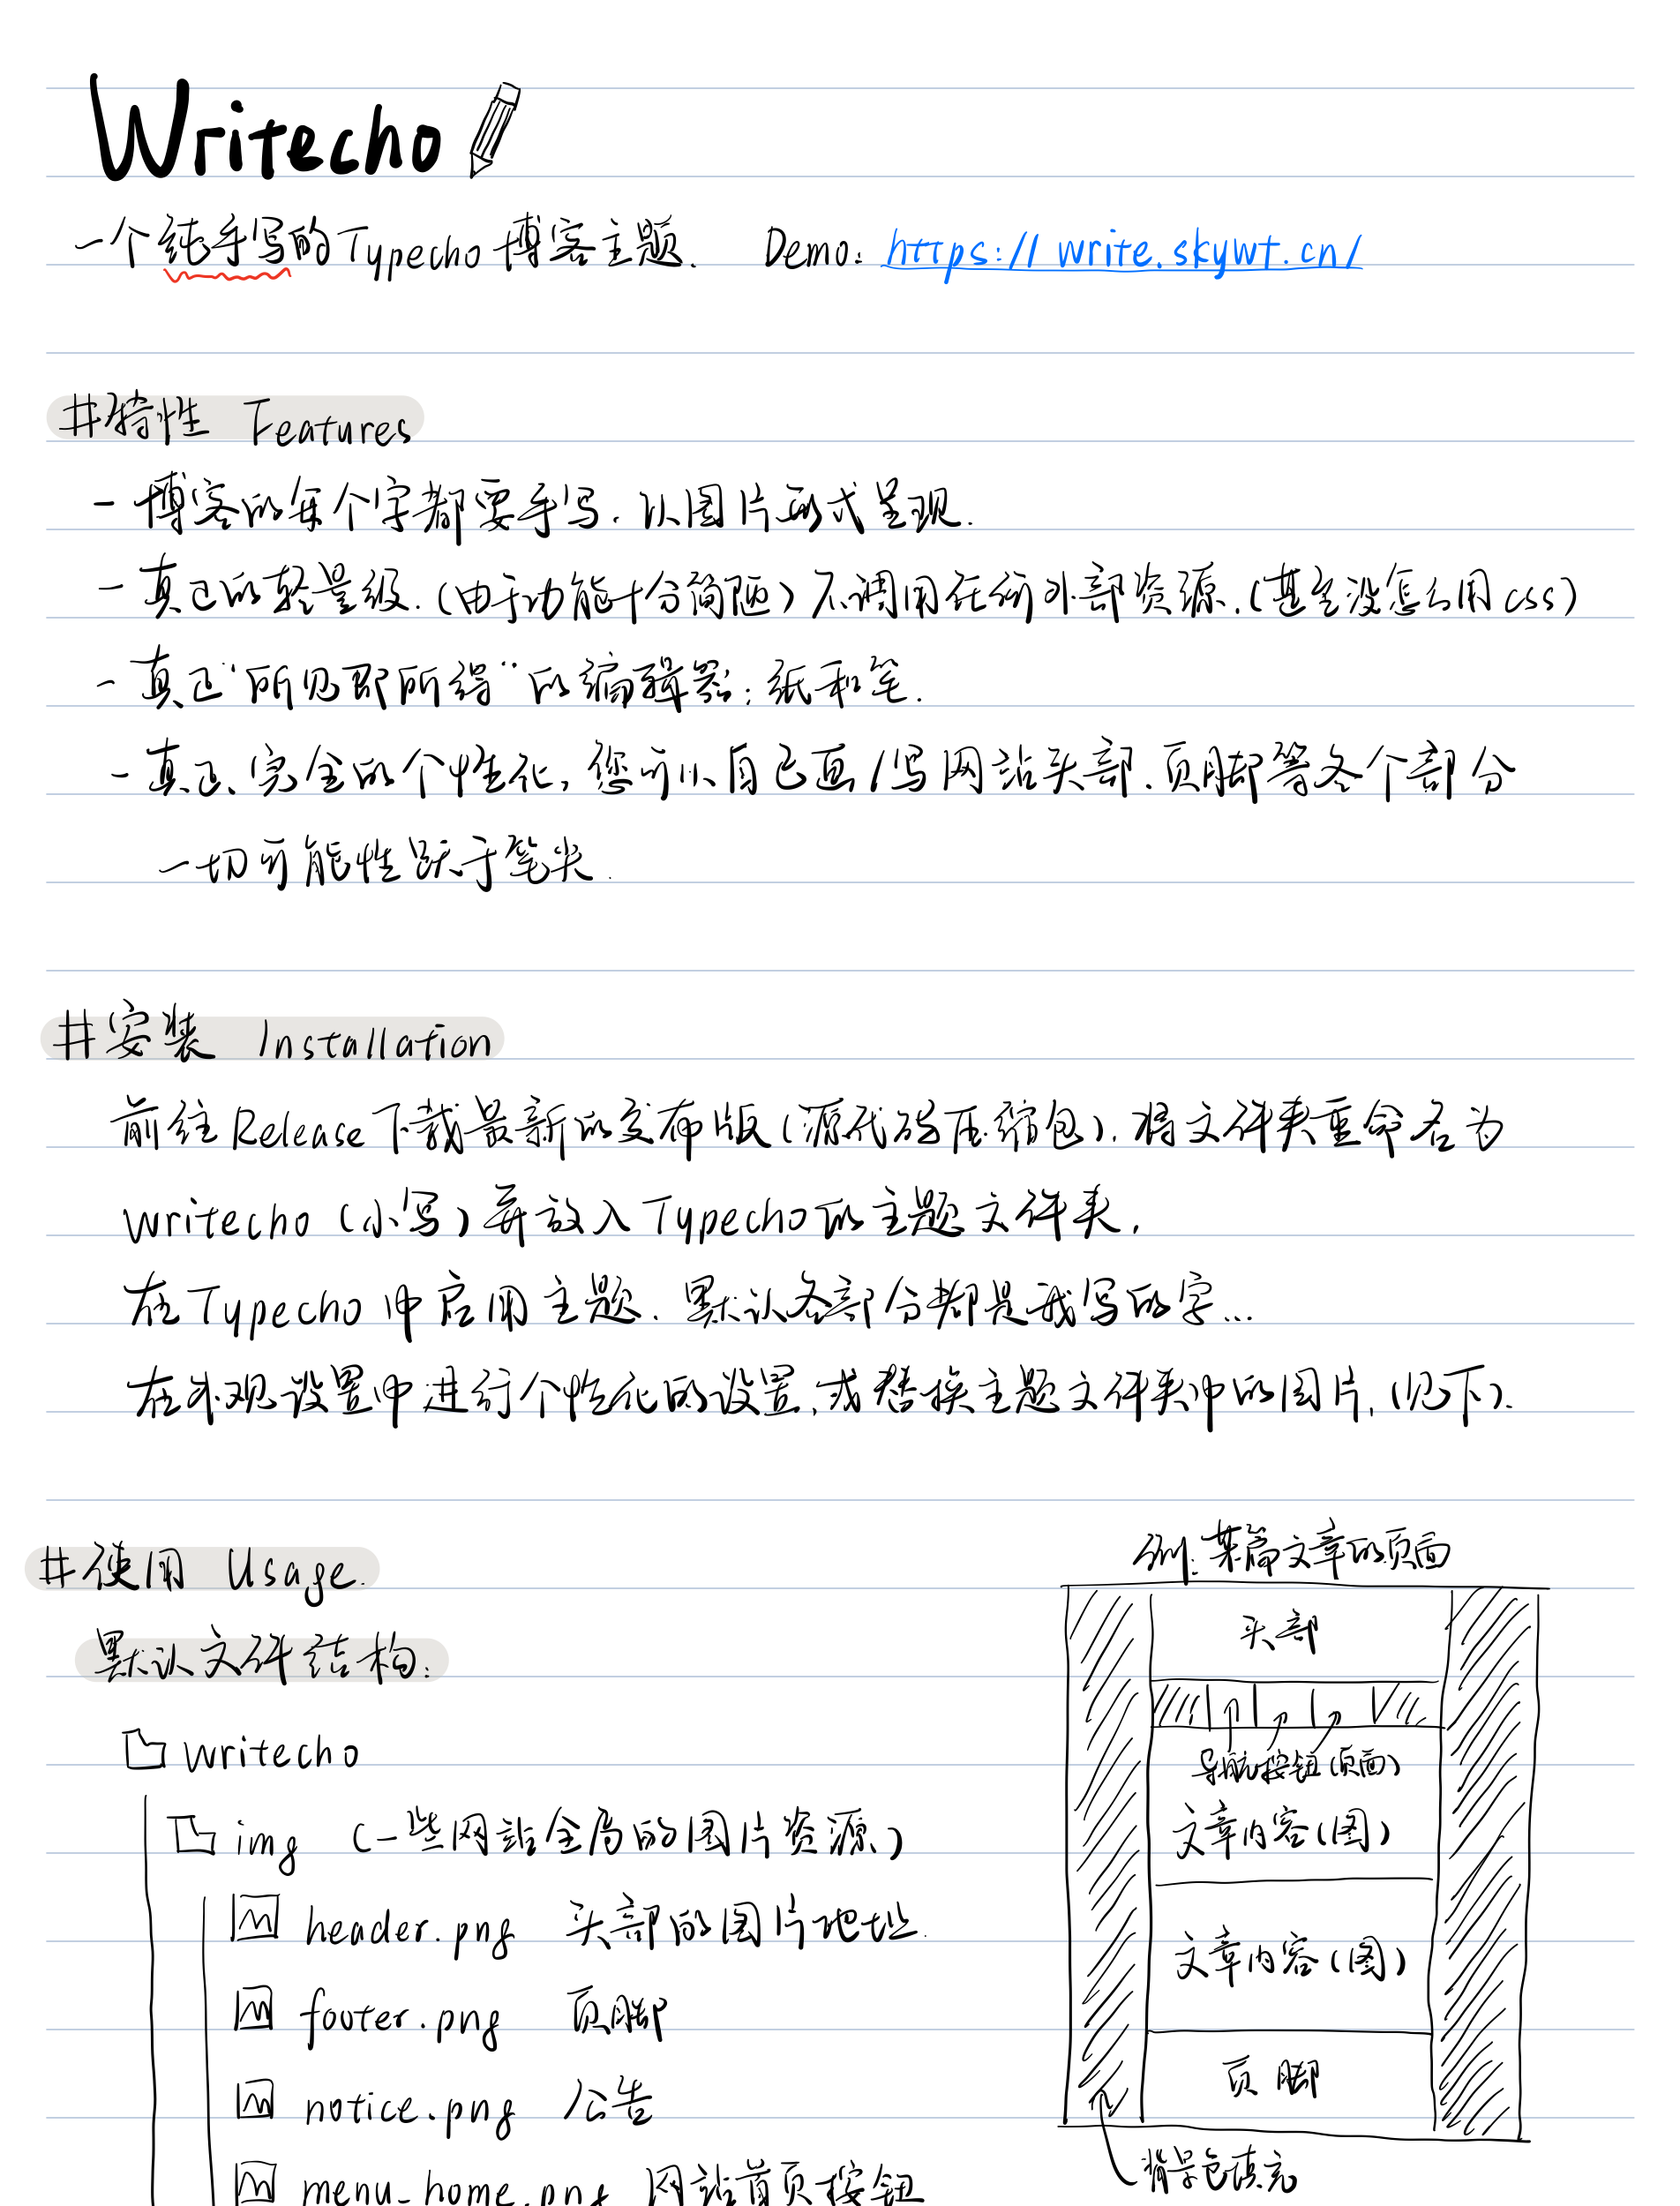 Writecho
一个纯手写的Typecho博客主题. Demo: https://write.skywt.cn/
#特性 Features
- 博客的每个字都要手写.以图片形式呈现.
- 真正的轻量级.(由于功能十分简陋)不调用任何外部资源.(甚至没怎么用css)
- 真正"所见即所得"的编辑器:纸和笔.
- 真正、完全的个性化,您可以自己画/写网站头部、页脚等各个部分
一切可能性跃于笔尖.
#安装 Installation
前往Release下载最新的发布版(源代码压缩包).将文件夹重命名为
writecho(小写)并放入Typecho的主题文件夹.
在Typecho中启用主题.默认各部分都是我写的字...
在外观设置中进行个性化的设置,或替换主题文件夹中的图片.(见下).
#使用 Usage.
默认文件结构:
writecho
img (一些网站全局的图片资源)
header.png 头部的图片地址.
footer.png 页脚
notice.png 公告
menu-home.png 网站首页按钮
例:某篇文章的页面
头部
导航按钮(页面)
文章内容(图)
文章内容(图)
页脚
背景色填充